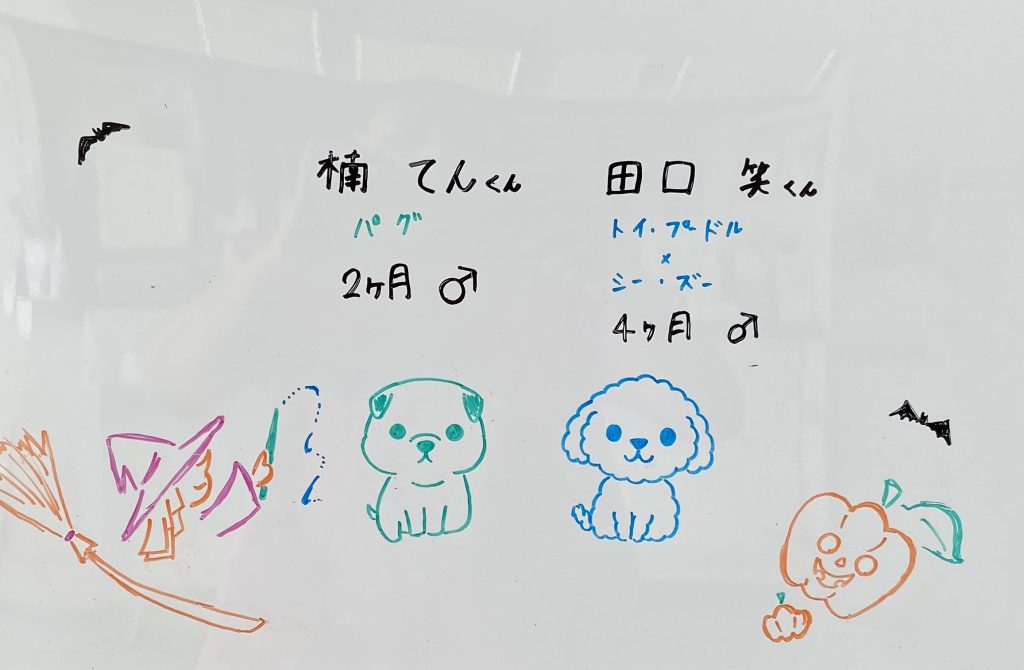 楠 てんくん
パグ
2ヶ月 ♂
田口 笑くん
トイ・プードル
×
シー・ズー
4ヶ月 ♂